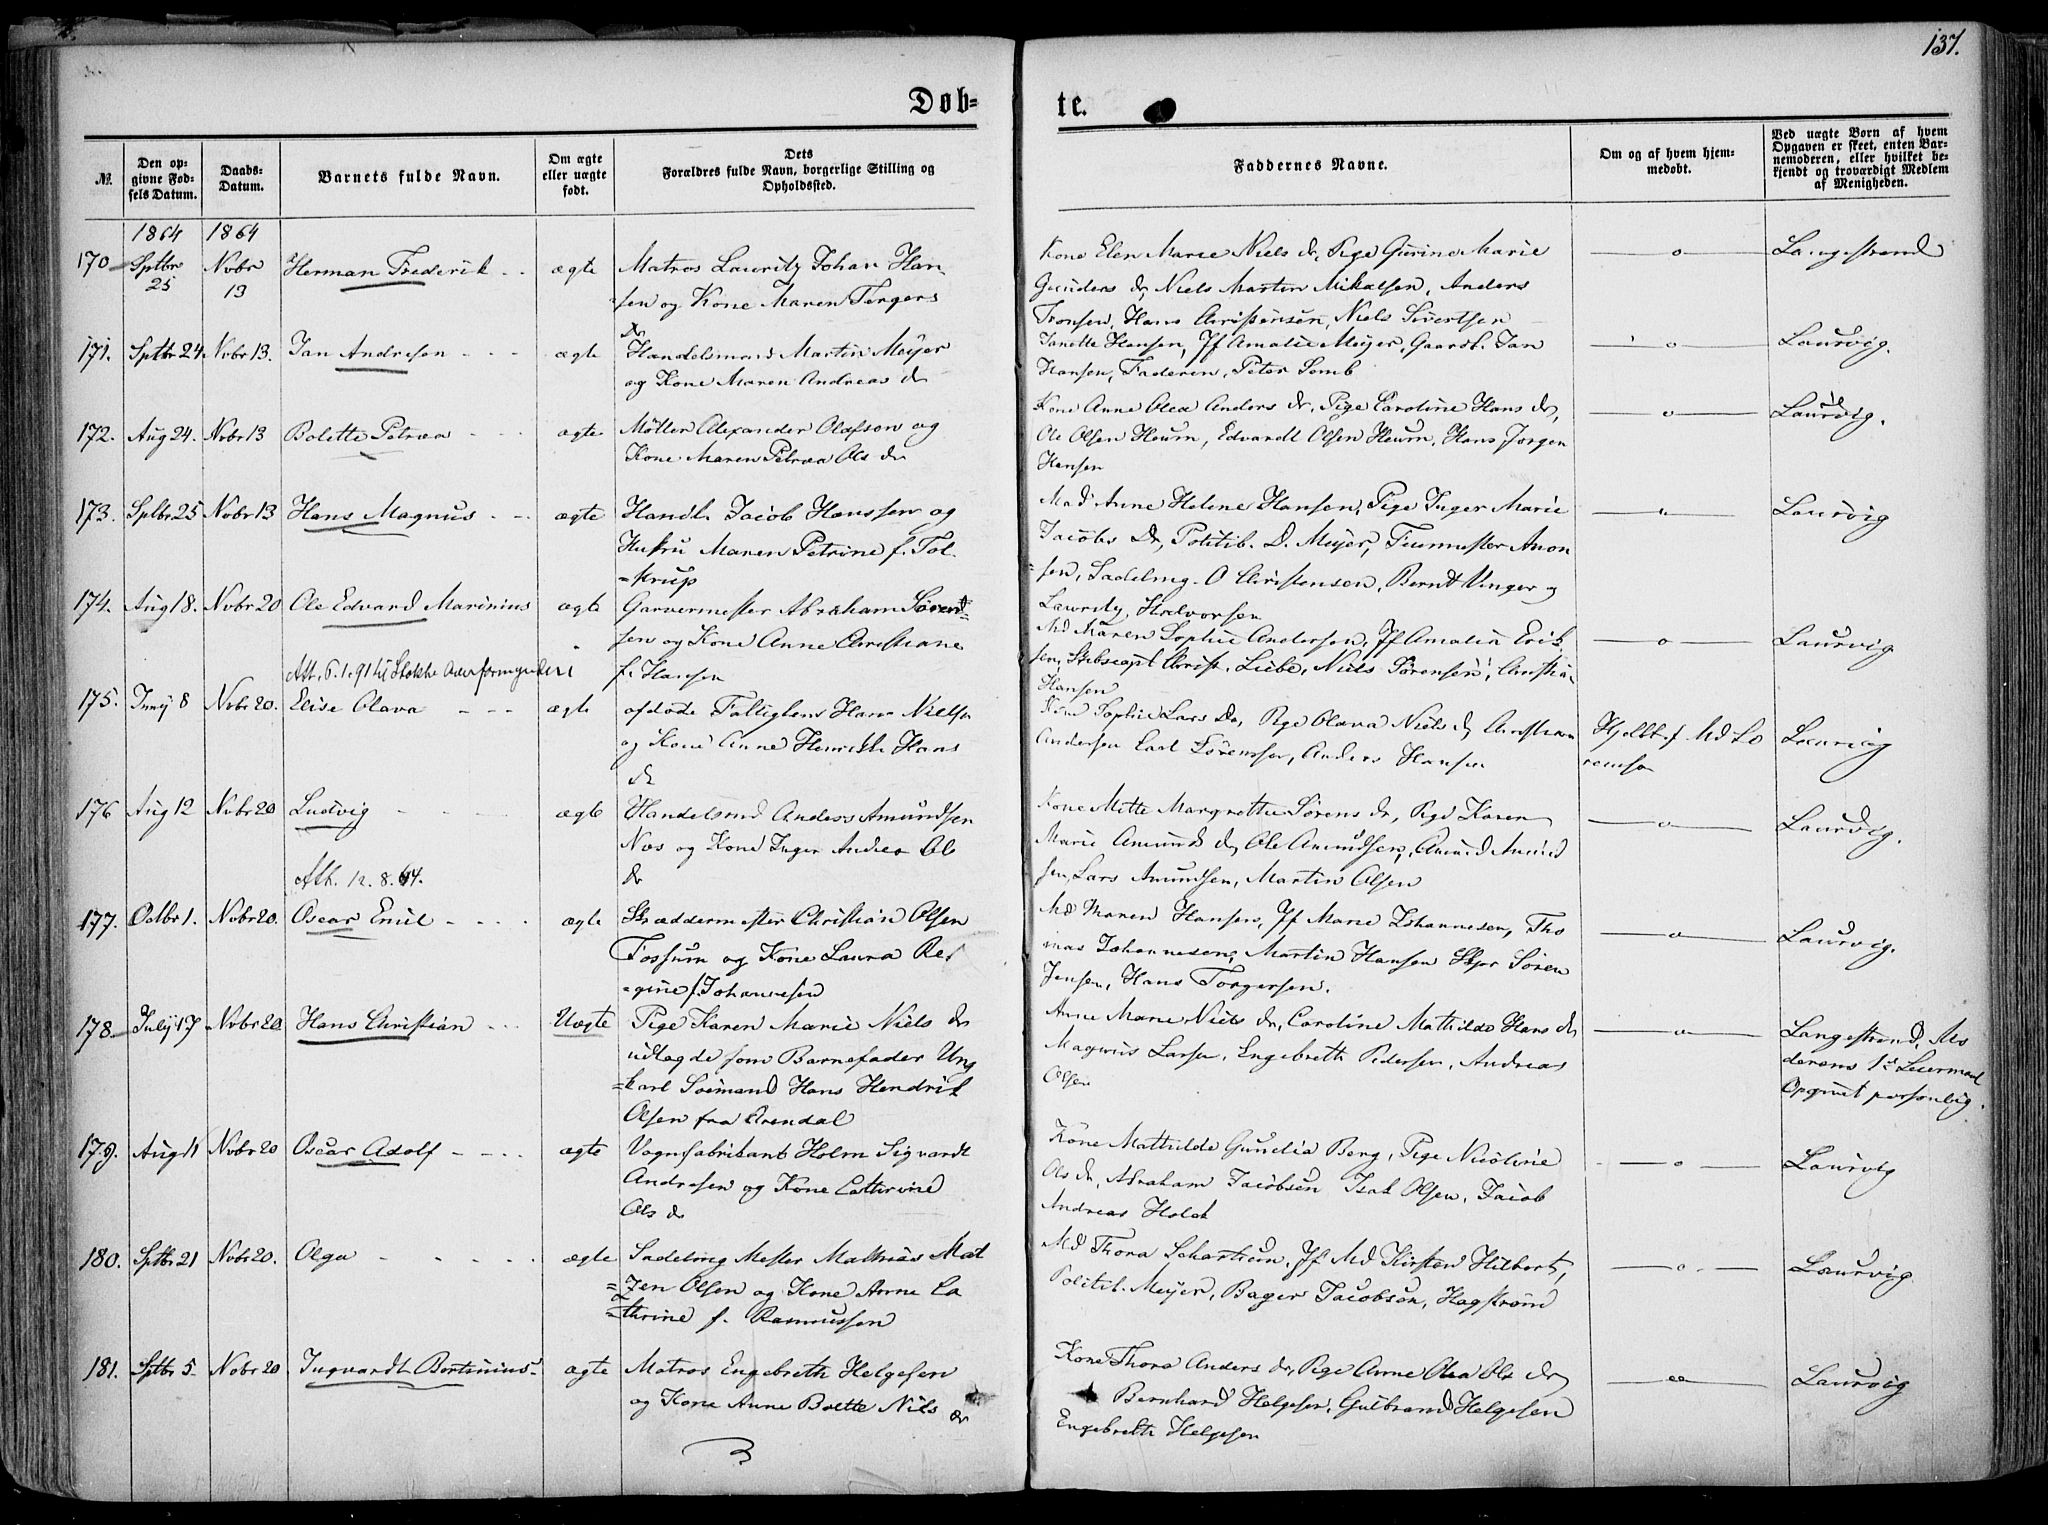 137.
Døb=
te.
№.
Den op=
givne Fød=
sels Datum.
Daabs=
Datum.
Barnets fulde Navn.
Om ægte
eller uægte
født.
Dets
Forældres fulde Navn, borgerlige Stilling og
Opholdssted.
Faddernes Navne.
Om og af hvem hjem=
medøbt.
Ved uægte Børn af hvem
Opgaven er skeet, enten Bar=
nemoderen, eller hvilket be=
kjendt og troværdigt Medlem
af Menigheden.
1864 1864
170 Sptbr 25 Nvbr 13 Herman Frederik ægte
Matros Lauritz Johan Han-
sen og Kone Maren Torgers
dr
Kone Elen Marie Niels dr, Pige Gurine Marie
Gunders dr, Niels Martin Mikalsen, Anders
Tronsen, Hans Christensen, Niels Sivertsen
o
Langestrand
171. Sptbr 24 Nvbr 13. Jan Andresen ægte
Handelsmand Martin Meyer
og Kone Maren Andreas dr
Janette Hansen, Jf Amalie Meyer, Gaardb. Jan
Hansen, Faderen, Peter Lomb
o
Laurvig.
172. Aug 24. Nvbr 13 Bolette Petrea ægte
Møller Alexander Olafson og
Kone Maren Petrea Ols dr
Kone Anne Olea Anders dr, Pige Caroline Hans dr,
Ole Olsen Heum, Edvardt Olsen Heum, Hans Jørgen
Hansen
o
Laurvig.
173. Sptbr 25 Nvbr 13 Hans Magnus ægte
Handl. Jacob Hanssen og
Hustru Maren Petrine f. Tol-
=strup
Mad Anne Helene Hansen, Pige Inger Marie
Jacobs Dr, Politib. D. Meyer, Anon
=sen, Sadelmg. O Christensen, Bernt Unger og
Lauritz Halvorsen
Laurvig
174. Aug 18. Nvbr 20 Ole Edvard Marinius ægte
Garvermester Abraham Sørend=
sen og Kone Anne Christiane
f. Hansen
Md Maren Sophie Andersen, Jf Amalia Erik
sen, Skibscapt Christ. Liebe, Niels Sørensen, Christian
Hansen
o
Laurvig
Att. 6.1.91 til Stokke Overformynderi
175. Juny 8 Nvbr 20. Elise Olava ægte
afdøde Fattiglem Hans Nielsen
og Kone Anne Henrikke Hans
dr
Kone Sophie Lars Dr, Pige Olava Niels dr, Christian
Andersen Carl Sørensen, Anders Hansen
Hjdbt. f Md Lo
rensen
Laurvig
176 Aug 12 Nvbr 20 Ludvig ægte
Handelsmd Anders Amundsen
Næs og Kone Inger Andrea Ol
dr
Kone Mette Margrethe Sørens dr, Pige Karen
Marie Amunds dr, Ole Amundsen, Amund Amund
sen, Lars Amundsen, Martin Olsen
o
Laurvig.
Att. 12.8.64.
177. Octbr 1. Nvbr 20. Oscar Emil ægte
Skræddermester Christian Olsen
Fossum og Kone Laura Re
=gine f. Johannesen
Md Maren Hansen, Jf Marie Johannesen, Tho
mas Johannesen, Martin Hansen Skpr Søren
Jensen, Hans Torgersen.
o
Laurvig.
178 July 17 Nvbr 20 Hans Christian Uægte
Pige Karen Marie Niels dr
udlagde som Barnefader Ung
=karl Sømand Hans Hendrik
Olsen fra Arendal
Anne Marie Niels dr, Caroline Mathilde Hans dr
Magnus Larsen, Engebreth Pedersen, Andreas
Olsen
o
Langestrand, Mo
derens 1ste Leiermaal
Opgivet personlig.
179. Aug 11 Nvbr 20 Oscar Adolf ægte
Vognfabrikant Holm Sigvardt
Andresen og Kone Cathrine
Ols dr
Kone Mathilde Gunelia Berg, Pige Nicoline
Ols dr, Abraham Jacobsen Isak Olsen, Jacob
Andreas Holck
o
Laurvig
180. Sptbr 21 Nvbr 20. Olga ægte
Sadelmg Mester Mathias Mat
=zen Olsen og Kone Anne Ca
=thrine f. Rasmussen
Md Thora Schartum, Jf Md Kirsten Hilbert,
Politib. Meyer, Bager Jacobsen, Hagstrøm
o
Laurvig
181. Sptbr 5 Nvbr 20 Ingvardt Bertinius ægte
Matros Engebreth Helgesen
og Kone Anne Bolette Niels dr
Kone Thora Anders dr, Pige Anne Olea Ols dr,
Bernhard Helgesen, Gulbrand Helgesen
Engebreth Helgesen
Laurvig